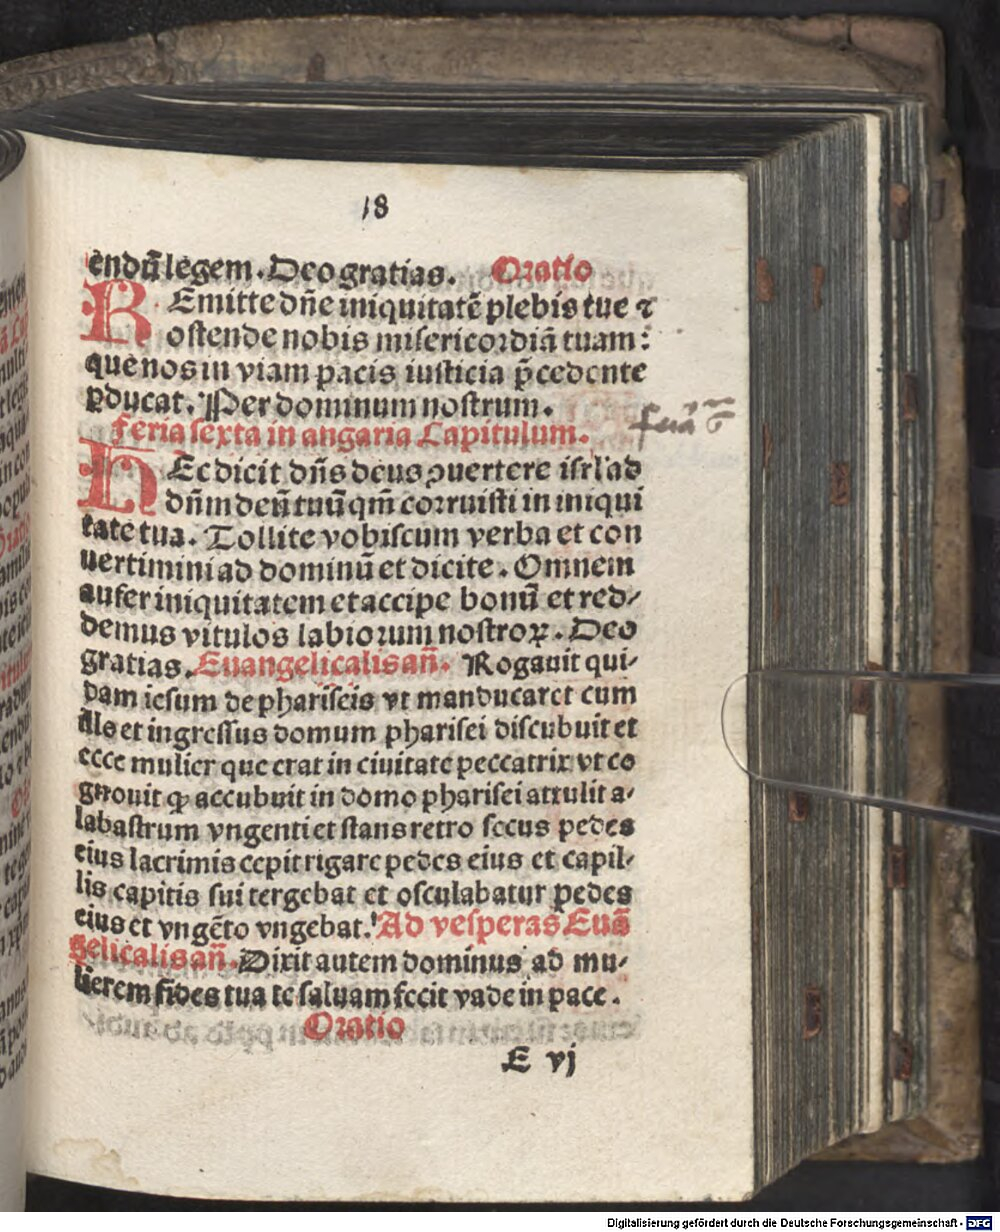 18
endū legem. Deo gratias. Oratio
REmitte dñe iniquitatē plebis tue ⁊
ostende nobis misericordiā tuam:
que nos in viam pacis iusticia p̄cedente
ꝑducat. Per dominum nostrum.
feria sexta in angaria Capitulum.
feria 6
HEc dicit dñs deus ꝯuertere isrl' ad
dñm deū tuū qm̄ corruisti in iniqui
tate tua. Tollite vobiscum verba et con
uertimini ad dominū et dicite. Omnem
aufer iniquitatem et accipe bonū et red⸗
demus vitulos labiorum nostroꝝ. Deo
gratias. Euangelicalis añ. Rogauit qui⸗
dam iesum de phariseis vt manducaret cum
illo et ingressus domum pharisei discubuit et
ecce mulier que erat in ciuitate peccatrix vt co
gnouit ꝙ accubuit in domo pharisei attulit a⸗
labastrum vngenti et stans retro secus pedes
eius lacrimis cepit rigare pedes eius et capil⸗
lis capitis sui tergebat et osculabatur pedes
eius et vngēto vngebat. Ad vesperas Euā
gelicalis añ. Dixit autem dominus ad mu⸗
lierem fides tua te saluam fecit vade in pace.
Oratio
E vj
Digitalisierung gefördert durch die Deutsche Forschungsgemeinschaft - DFG